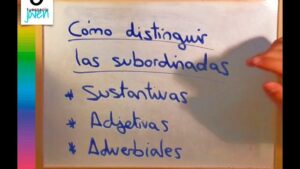 joven
Cómo distinguir
las subordinadas
* Sustantivas
* Adjetivas
* Adverbiales